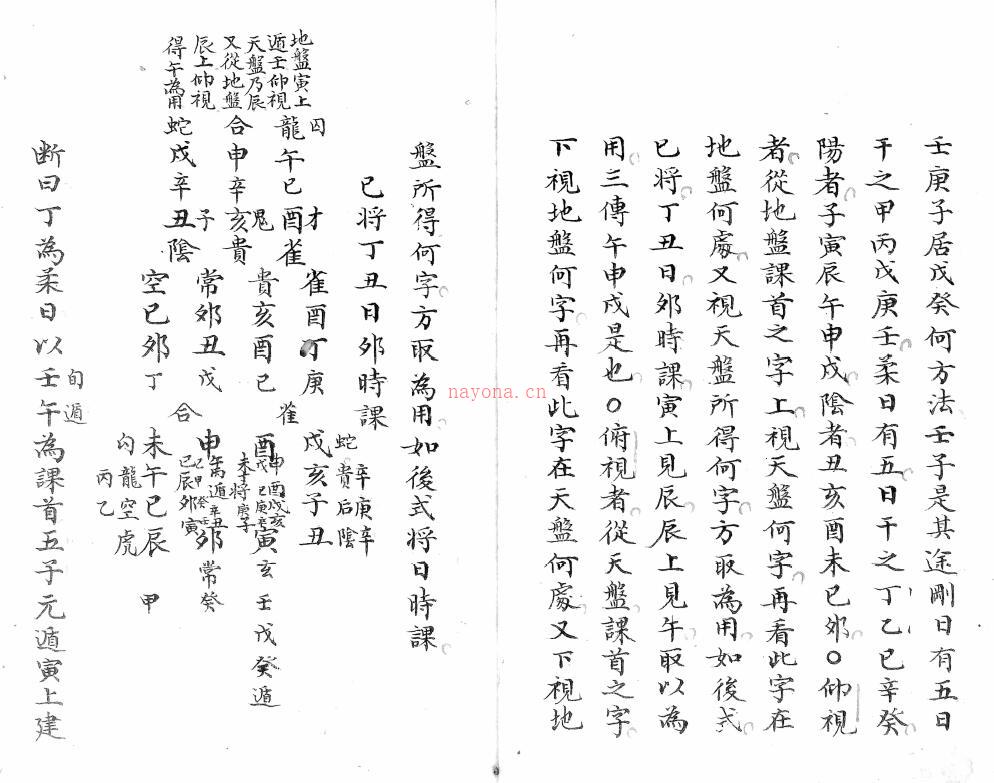 壬庚子居戊癸何方法壬子是其途剛日有五日
干之甲丙戊庚壬柔日有五日干之丁乙巳辛癸
陽者子寅辰午申戌陰者丑亥酉未巳夘○仰視
者從地盤課首之字上視天盤何字再看此字在
地盤何處又視天盤所得何字方取為用如後式
巳将丁丑日夘時課寅上見辰辰上見午取以為
用三傳午申戌是也○俯視者從天盤課首之字
下視地盤何字再看此字在天盤何處又下視地
盤所得何字方取為用如後式将日時課
巳将丁丑日夘時課
地盤寅上
遁壬仰視
天盤乃辰
又從地盤
辰上仰視
得午為用
囚
龍午巳酉雀
才
合申辛亥貴
鬼
蛇戌辛丑陰
子
雀酉丁庚
貴亥酉己
常夘丑戊
空巳夘丁
蛇 雀 合 勾
貴后陰
辛庚辛
戌亥子丑
酉 寅玄壬戌癸遁
申 夘常癸
未午巳辰
龍空虎
丙乙 甲
旬遁
断曰丁為柔日以壬午為課首五子元遁寅上建
nayona.cn